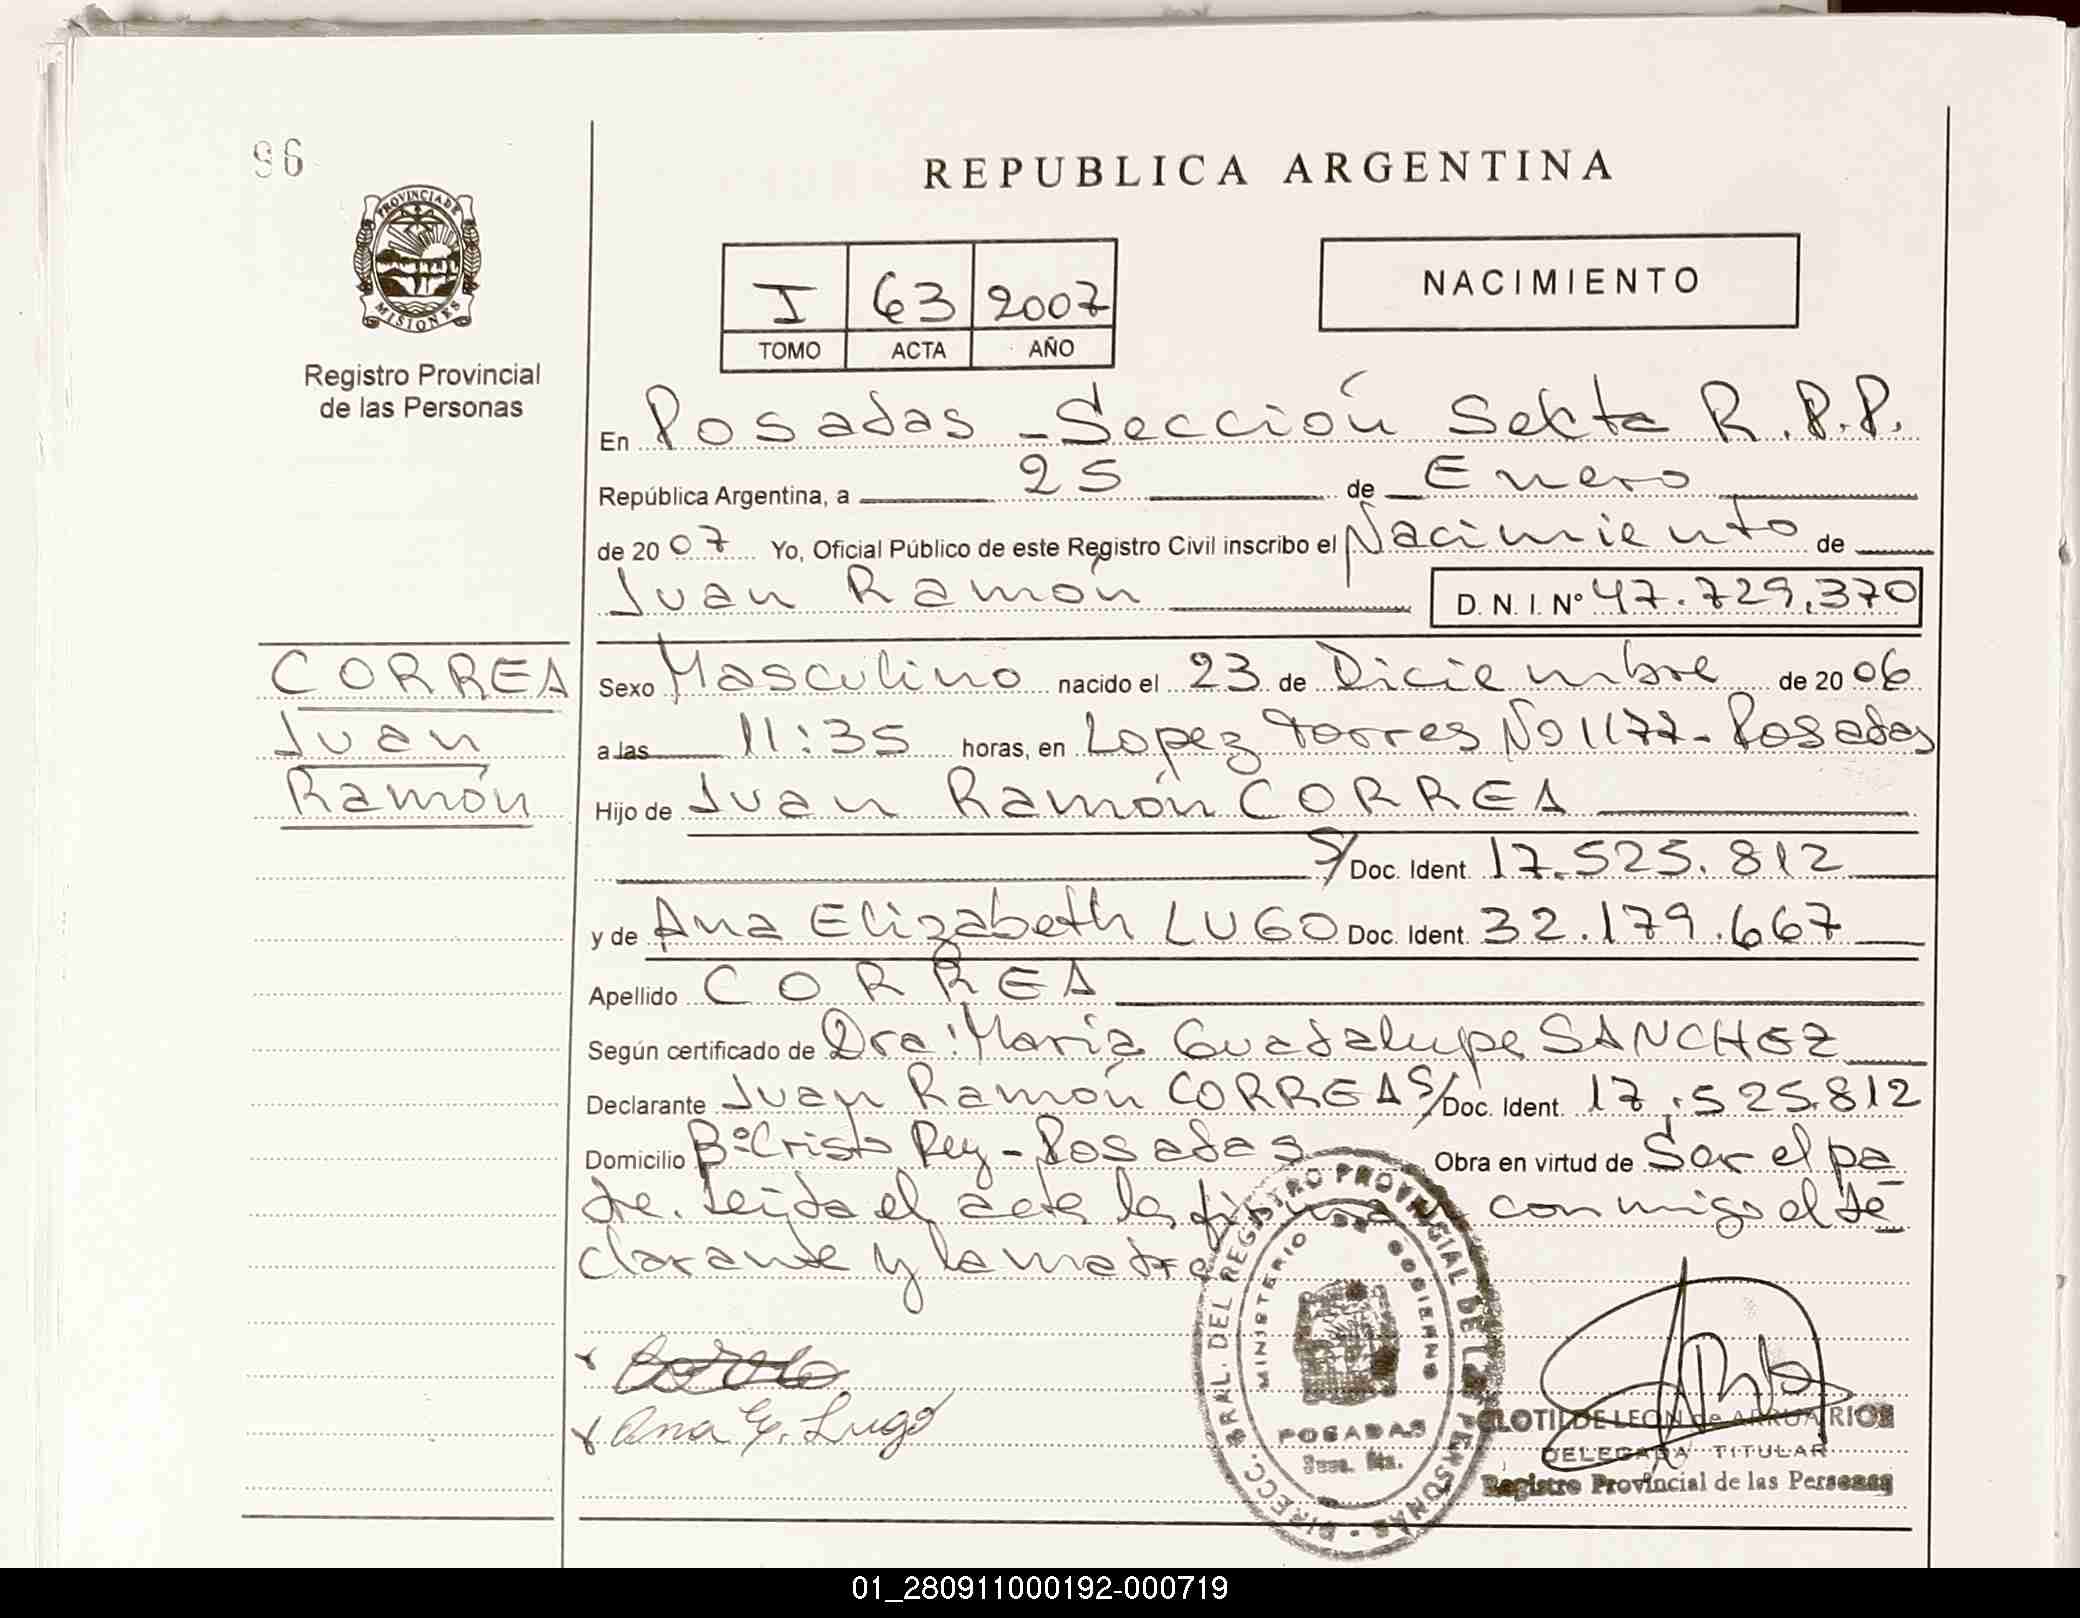 96
REPUBLICA ARGENTINA
PROVINCIA DE
MISIONES
Registro Provincial
de las Personas
I 63 2007
TOMO ACTA AÑO
NACIMIENTO
En Posadas - Sección Sexta R.P.P.
República Argentina, a 25 de Enero
de 2007 Yo, Oficial Público de este Registro Civil inscribo el Nacimiento de
Juan Ramón D.N.I. Nº 47.729.370
CORREA
Juan
Ramón
Sexo Masculino nacido el 23 de Diciembre de 2006
a las 11:35 horas, en Lopez Torres Nº 1177 - Posadas
Hijo de Juan Ramón CORREA
S/Doc. Ident. 17.525.812
y de Ana Elizabeth LUGO Doc. Ident. 32.179.667
Apellido CORREA
Según certificado de Dra: María Guadalupe SANCHEZ
Declarante Juan Ramón CORREA S/Doc. Ident. 17.525.812
Domicilio Bº Cristo Rey - Posadas Obra en virtud de Ser el pa
dre. Leída el acta la firman conmigo el de
clarante y la madre
x
x Ana E. Lugo
DIRECC. GRAL. DEL REGISTRO PROVINCIAL DE LAS PERSONAS
MINISTERIO DE GOBIERNO
POSADAS
Secc. 6ta.
CLOTILDE LEON de ARRUA RIOS
DELEGADA TITULAR
Registro Provincial de las Personas
01_280911000192-000719